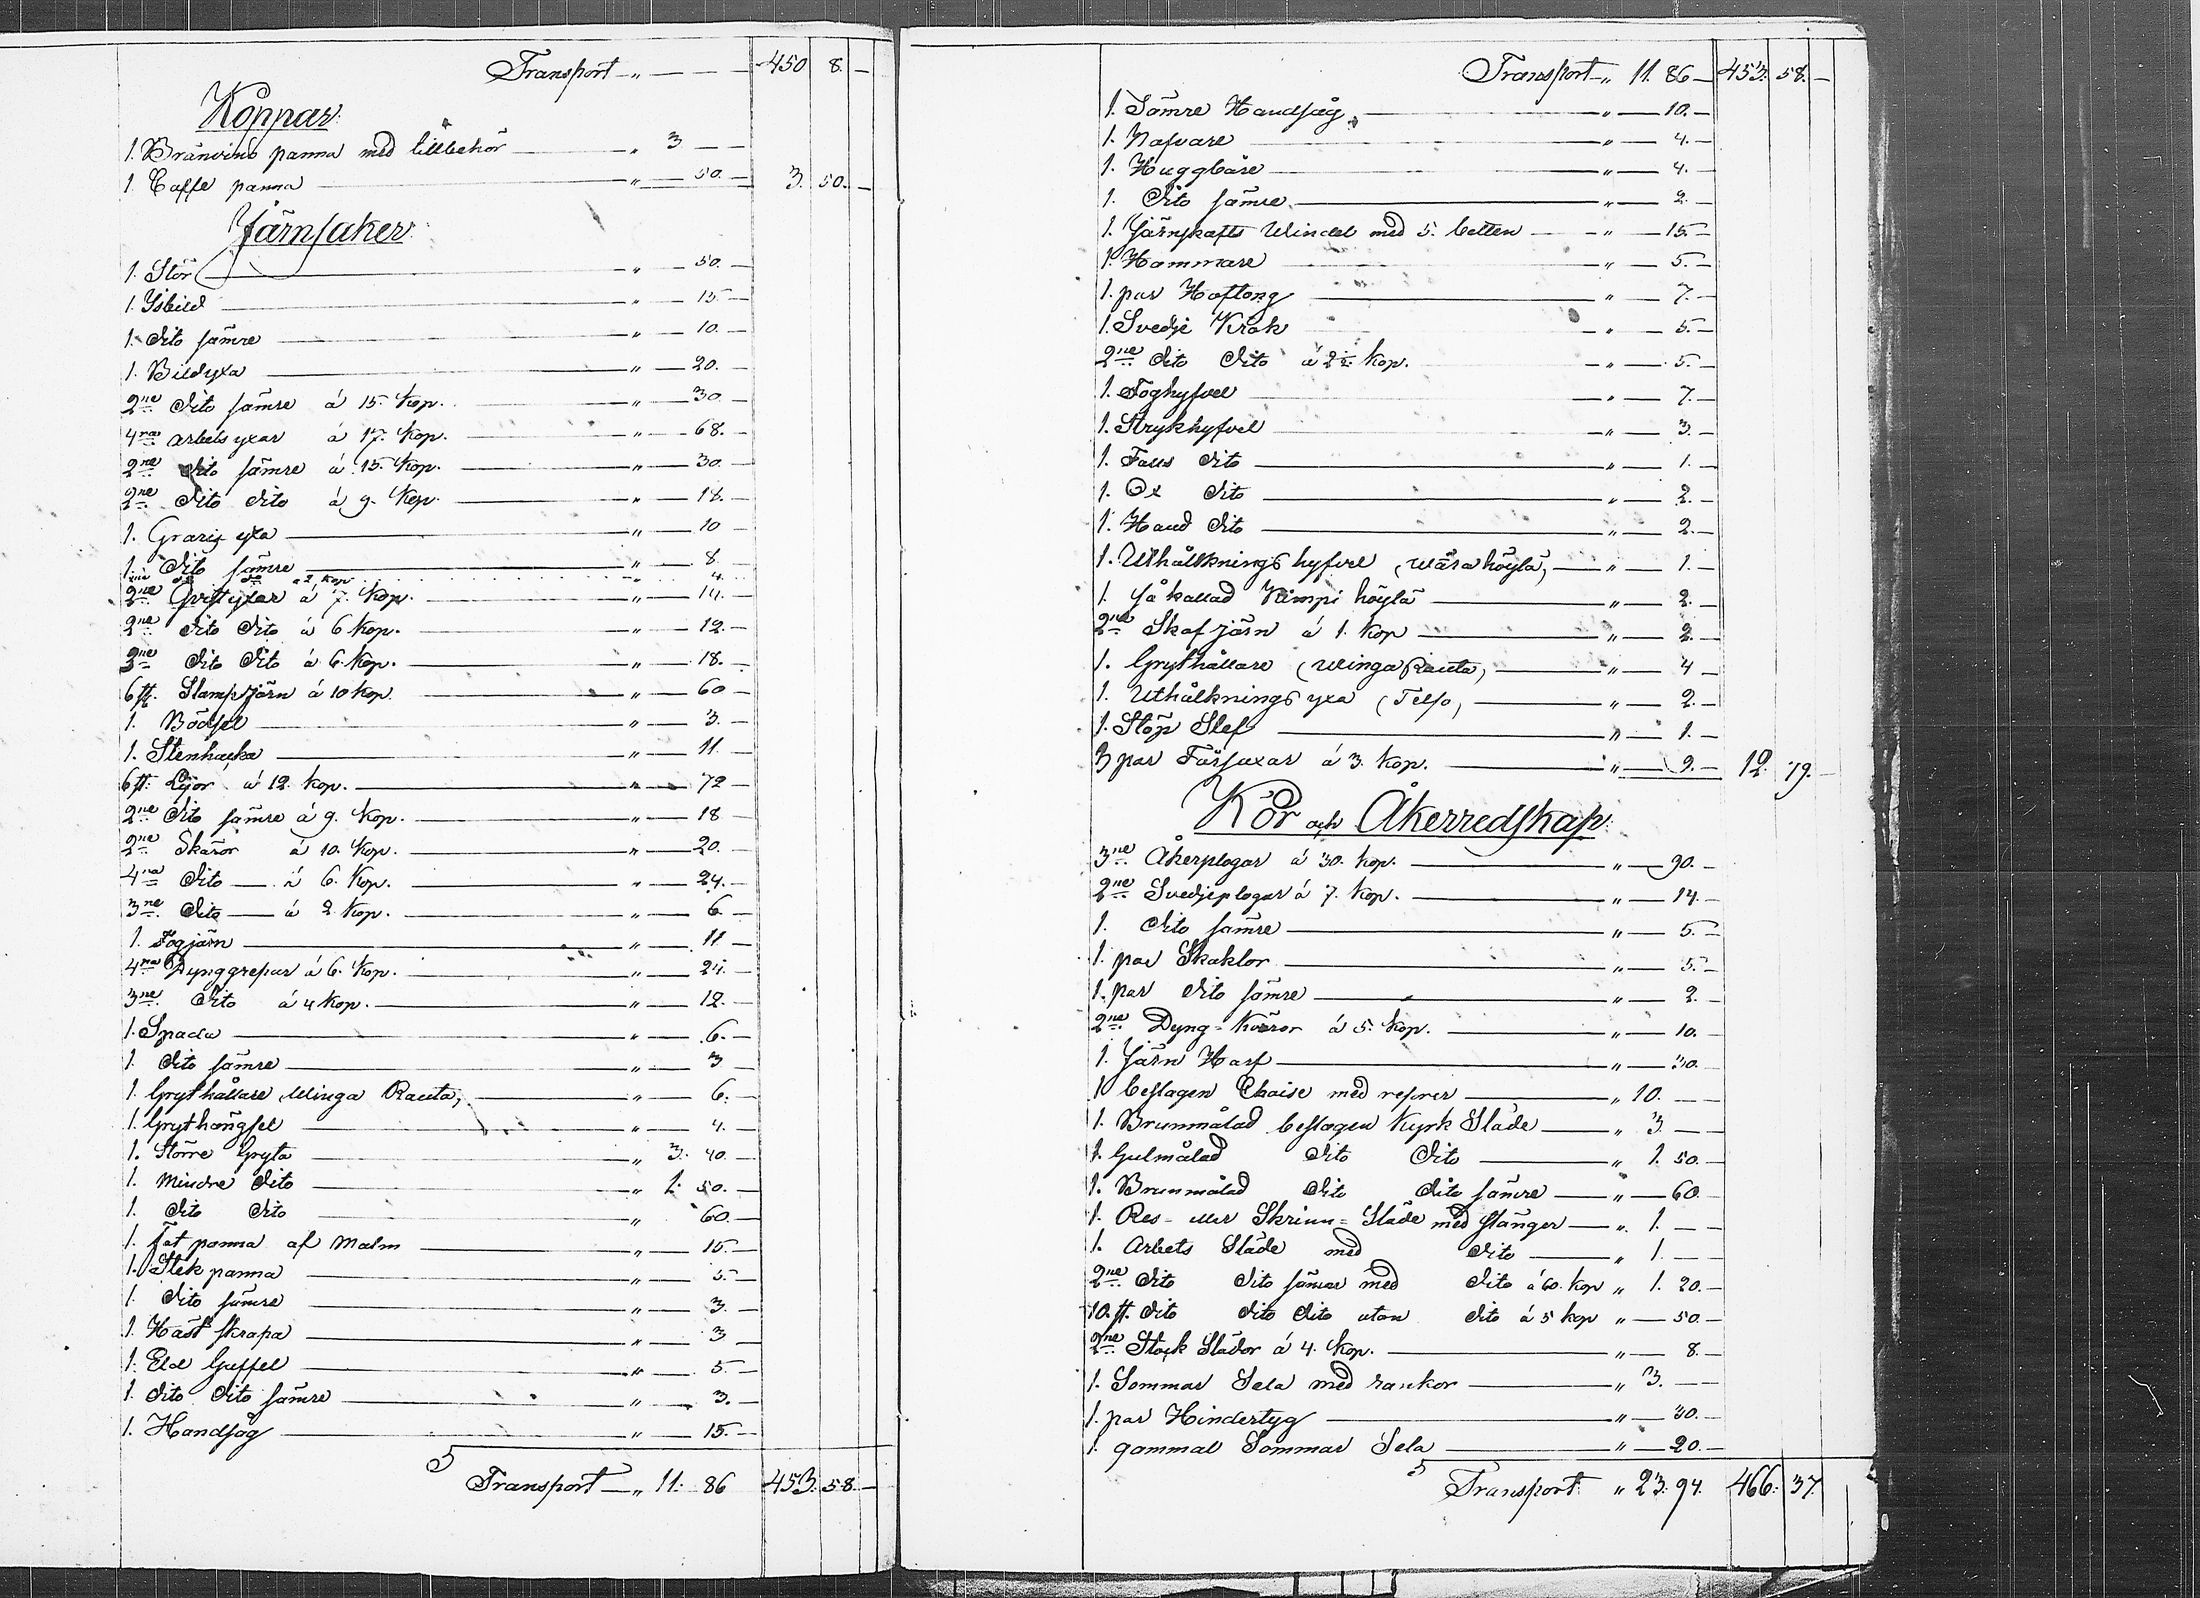 Transport „ — 450 8. —
Koppar.
1. Bränvins panna med tillbehör — „ 3 — —
1. Caffe panna — „ — 50. — 3. 50. —
Järnsaker
1. Stör — „ — 50. —
1. Isbill — „ — 15 —
1. dito sämre — „ — 10. —
1. Bildyxa — „ — 20. —
2ne dito sämre á 15. Kop. — „ — 30 —
4ra arbets yxar á 17. Kop. — „ — 68. —
2ne dito sämre á 15. Kop. — „ — 30. —
2ne dito dito á 9. Kop. — „ — 18. —
1. yxa — „ — 10 —
1. dito sämre — „ — 8. —
2ne do do á 2 Kop „ 4. —
2ne Qvistyxar á 7. Kop. — „ — 14. —
2ne dito dito á 6 Kop. — „ — 12. —
3ne dito dito á 6. Kop. — „ — 18. —
6 st. Stampjärn á 10 Kop. — „ — 60 —
1. Bödsel — „ — 3. —
1. Stenhacka — „ — 11. —
6 st. Lijor á 12. Kop. — „ — 72 —
2ne dito sämre á 9. Kop. — „ — 18 —
2ne Skäror á 10. Kop. — „ — 20. —
4ra dito — á 6. Kop. — „ — 24. —
3ne dito — á 2 Kop. — „ — 6. —
1. Fogjärn — „ — 11 —
4ra Dynggrepar á 6. Kop. — „ — 24. —
3ne dito á 4 Kop. — „ — 12. —
1. Spada — „ — 6. —
1. dito sämre — „ — 3 —
1. Grythållare, Winga Rauta, — „ — 6. —
1. Grythängsel — „ — 4. —
1. Större Gryta — „ 3. 40. —
1. Mindre dito — „ 1. 50. —
1. dito dito — „ 60. —
1. fat panna af Malm — „ — 15. —
1. Stek panna — „ — 5. —
1. dito sämre — „ — 3. —
1. Häst skrapa — „ — 3 —
1. Eld Gaffel — „ — 5. —
1. dito dito sämre — „ — 3. —
1. Handsåg — „ — 15. —
Transport — „ 11. 86 453. 58. —
Transport — „ 11. 86 — 453. 58. —
1. Sämre Handsåg — „ — 10. —
1. Nafvare — „ — 4. —
1. Huggbåre — „ — 4. —
1. dito sämre — „ — 2. —
1. Järnskafts Windel med 5. betten — „ — 15. —
1. Hammare — „ — 5. —
1. par Hoftong — „ — 7. —
1. Svedje Krok — „ — 5. —
2ne dito dito á 2½ Kop. — „ — 5. —
1. Foghyfvel — „ — 7. —
1. Strykhyfvel — „ — 3. —
1. Fals dito — „ — 1. —
1. Ox dito — „ — 2. —
1. Hand dito — „ — 2. —
1. Uthålknings hyfvel (wäsa höylä) — „ — 1. —
1. så kallad Kimpi höylä — „ — 2. —
2ne Skafjärn á 1. Kop — „ — 2. —
1. Grythållare (Winga Rauta) — „ — 4 —
1. Uthålknings yxa (Telso) — „ — 2. —
1. Stöp Slef — „ — 1. —
3 par Fårsaxar á 3. Kop. — „ — 9. — 12. 79. —
Kör och Åkerredskap.
3ne Åkerplogar á 30. Kop. — „ — 90. —
2ne Svedjeplogar á 7. Kop. — „ — 14. —
1. dito sämre — „ — 5. —
1. par Skaklor — „ — 5. —
1. par dito sämre — „ — 2. —
2ne Dyng-Kärror á 5. Kop. — „ — 10. —
1. Järn Harf — „ — 30. —
1 beslagen Chaise med — „ 10. — —
1. Brunmålad beslagen Kyrk Släde — „ 3. — —
1. Gulmålad dito dito — „ 1. 50. —
1. Brunmålad dito dito sämre — „ — 60. —
1. Res- eller Skrinn-Släde med stänger — „ 1. — —
1. Arbets Släde med dito — „ 1. — —
2ne dito dito sämre med dito á 60. Kop „ 1. 20. —
10. st. dito dito dito utan dito á 5 Kop „ — 50. —
2ne Stock Slädor á 4. Kop. — „ — 8. —
1. Sommar Sela med rankor — „ 3. — —
1. par Hindertyg — „ — 30. —
1. gammal Sommar Sela — „ — 20. —
Transport „ 23. 94. 466. 37.